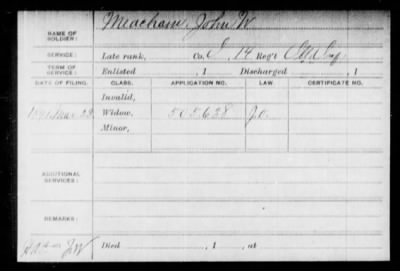 NAME OF SOLDIER: Meacham, John W.
SERVICE: Late rank, Co. I, 14 Reg't
TERM OF SERVICE: Enlisted , 1 Discharged , 1
DATE OF FILING. CLASS. APPLICATION NO. LAW. CERTIFICATE NO.
Invalid,
Widow, 505628
Minor,
ADDITIONAL SERVICES:
REMARKS:
Died , 1 , at